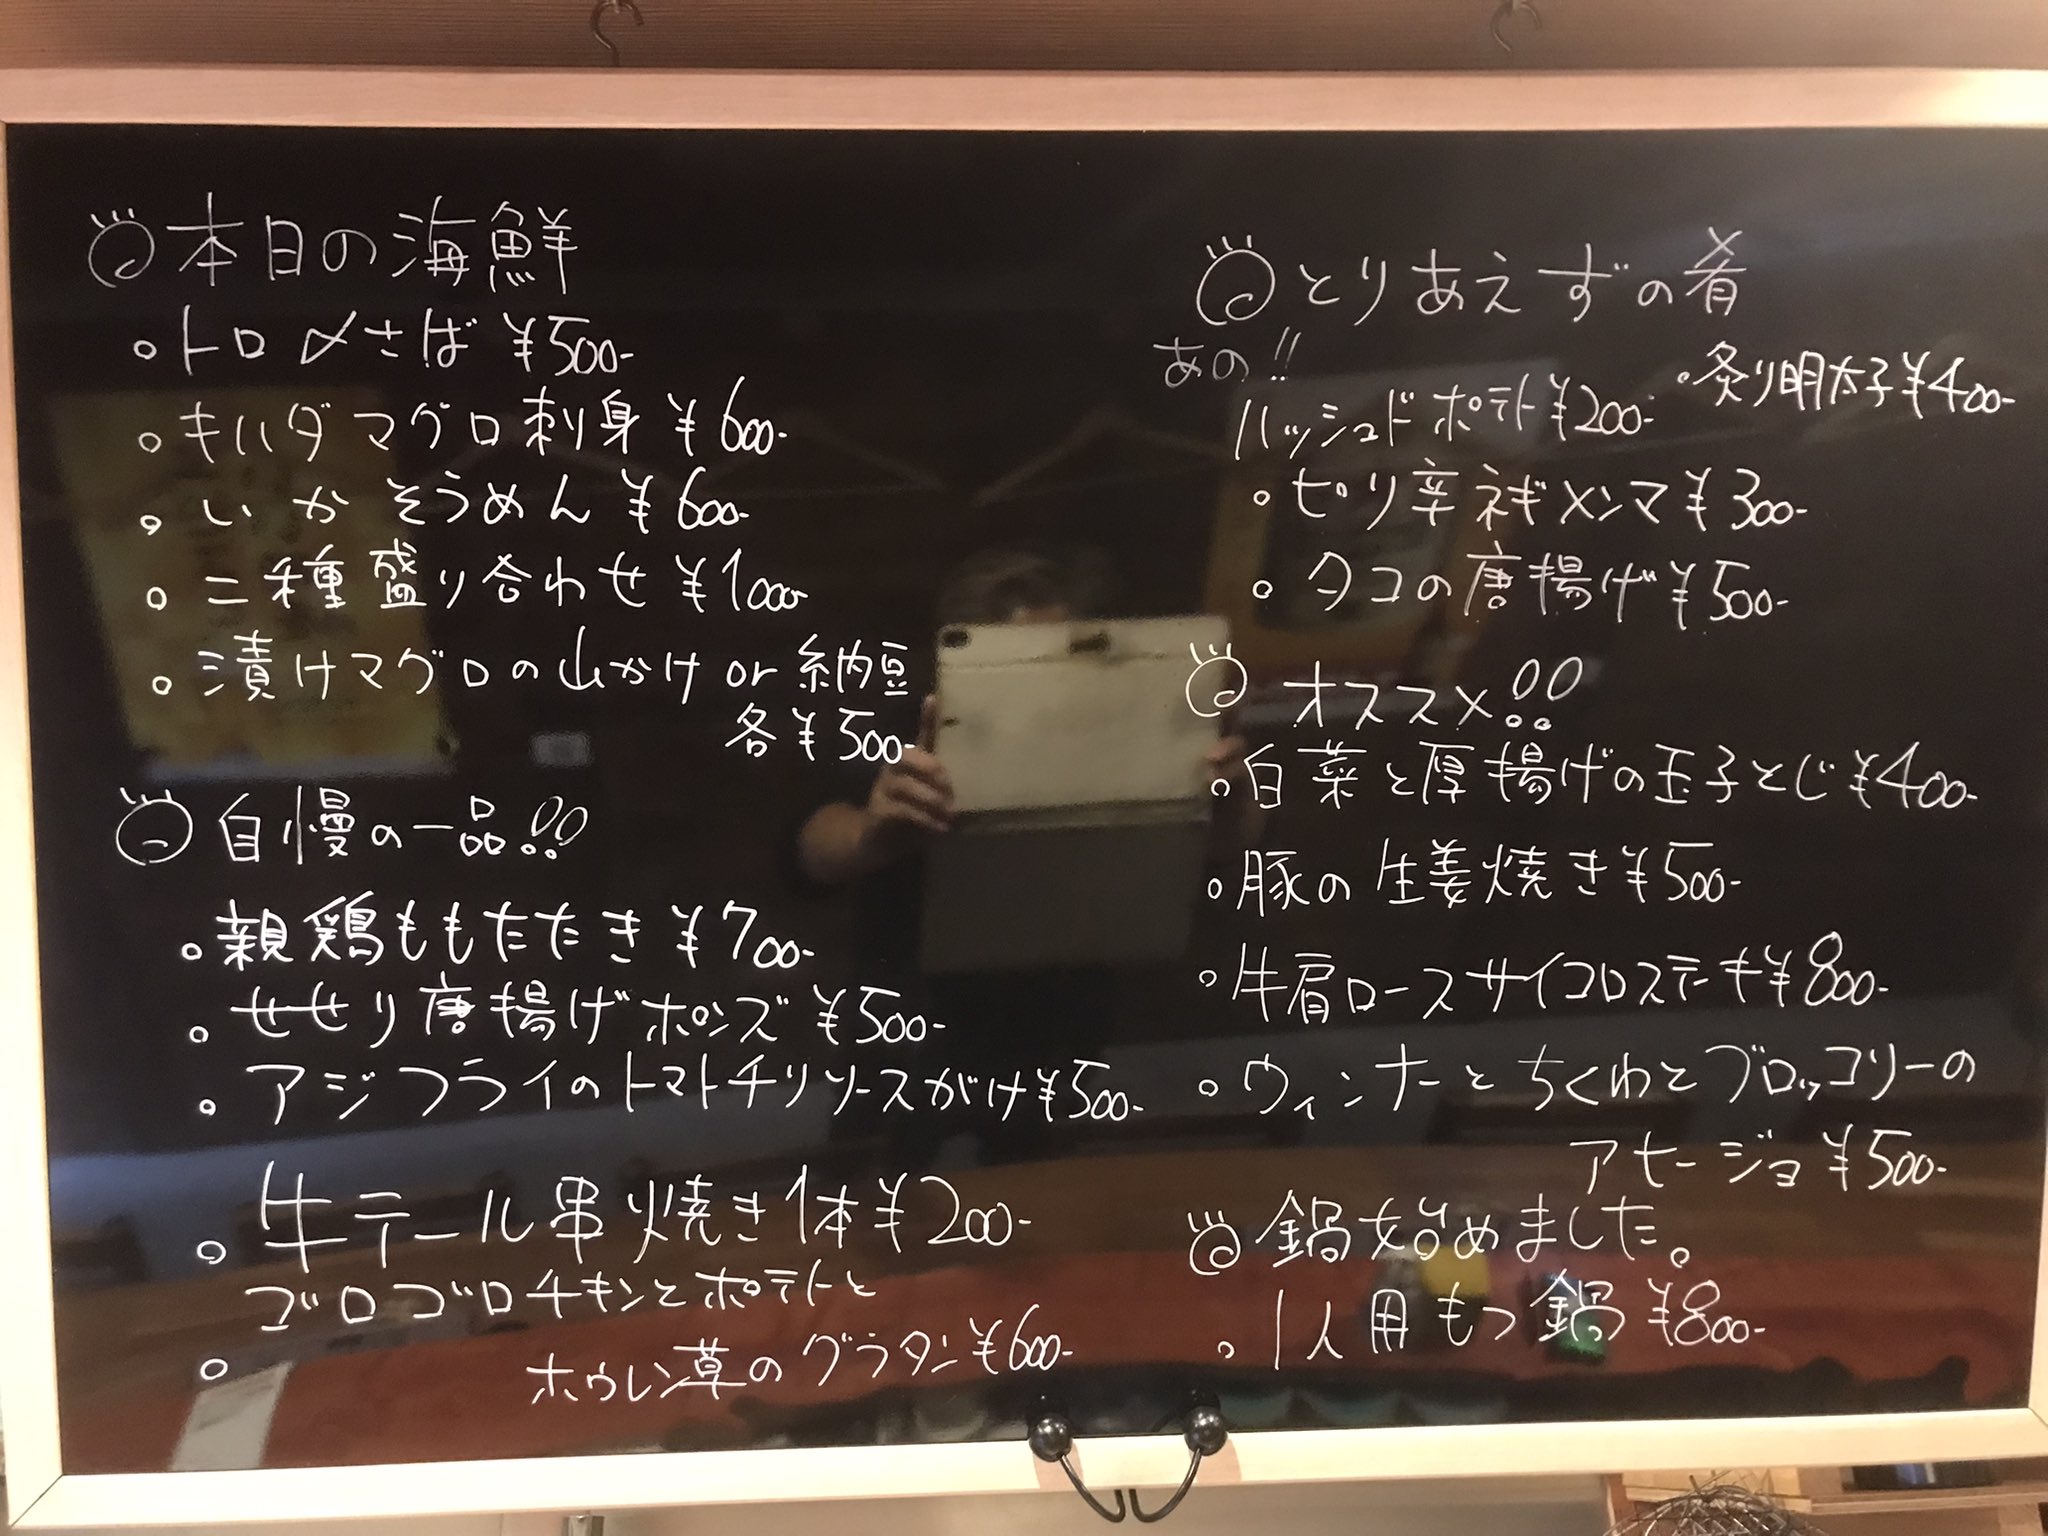 本日の海鮮
トロ〆さば ¥500-
キハダマグロ刺身 ¥600-
いかそうめん ¥600-
二種盛り合わせ ¥1000-
漬けマグロの山かけ or 納豆
各¥500-
自慢の一品!!
親鶏ももたたき ¥700-
せせり唐揚げポンズ ¥500-
アジフライのトマトチリソースがけ¥500-
牛テール串焼き1本¥200-
ゴロゴロチキンとポテトと
ホウレン草のグラタン¥600-
とりあえずの肴
あの!!
ハッシュドポテト¥200-
炙り明太子¥400-
ピリ辛ネギメンマ¥300-
タコの唐揚げ¥500-
オススメ!!
白菜と厚揚げの玉子とじ¥400-
豚の生姜焼き¥500-
牛肩ロースサイコロステーキ¥800-
ウィンナーとちくわとブロッコリーの
アヒージョ¥500-
鍋始めました。
1人用もつ鍋¥800-